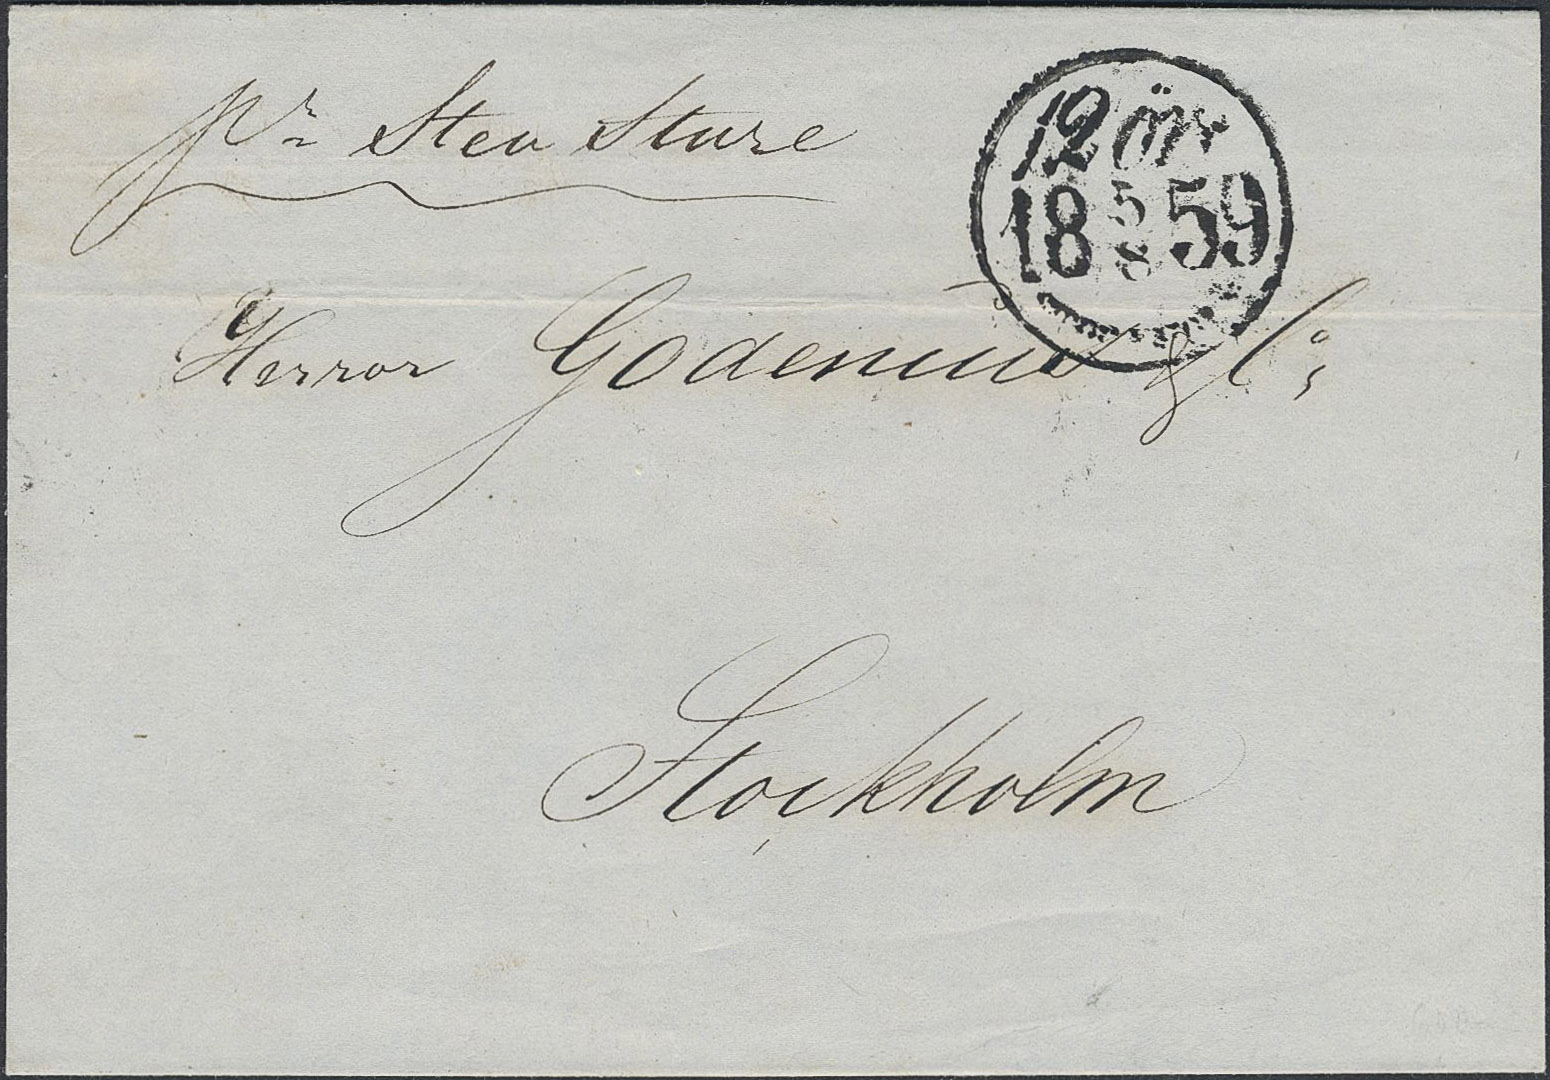 pr Sten Sture
12 öre
18 5/8 59
Herrar Godenius & Co,
Stockholm